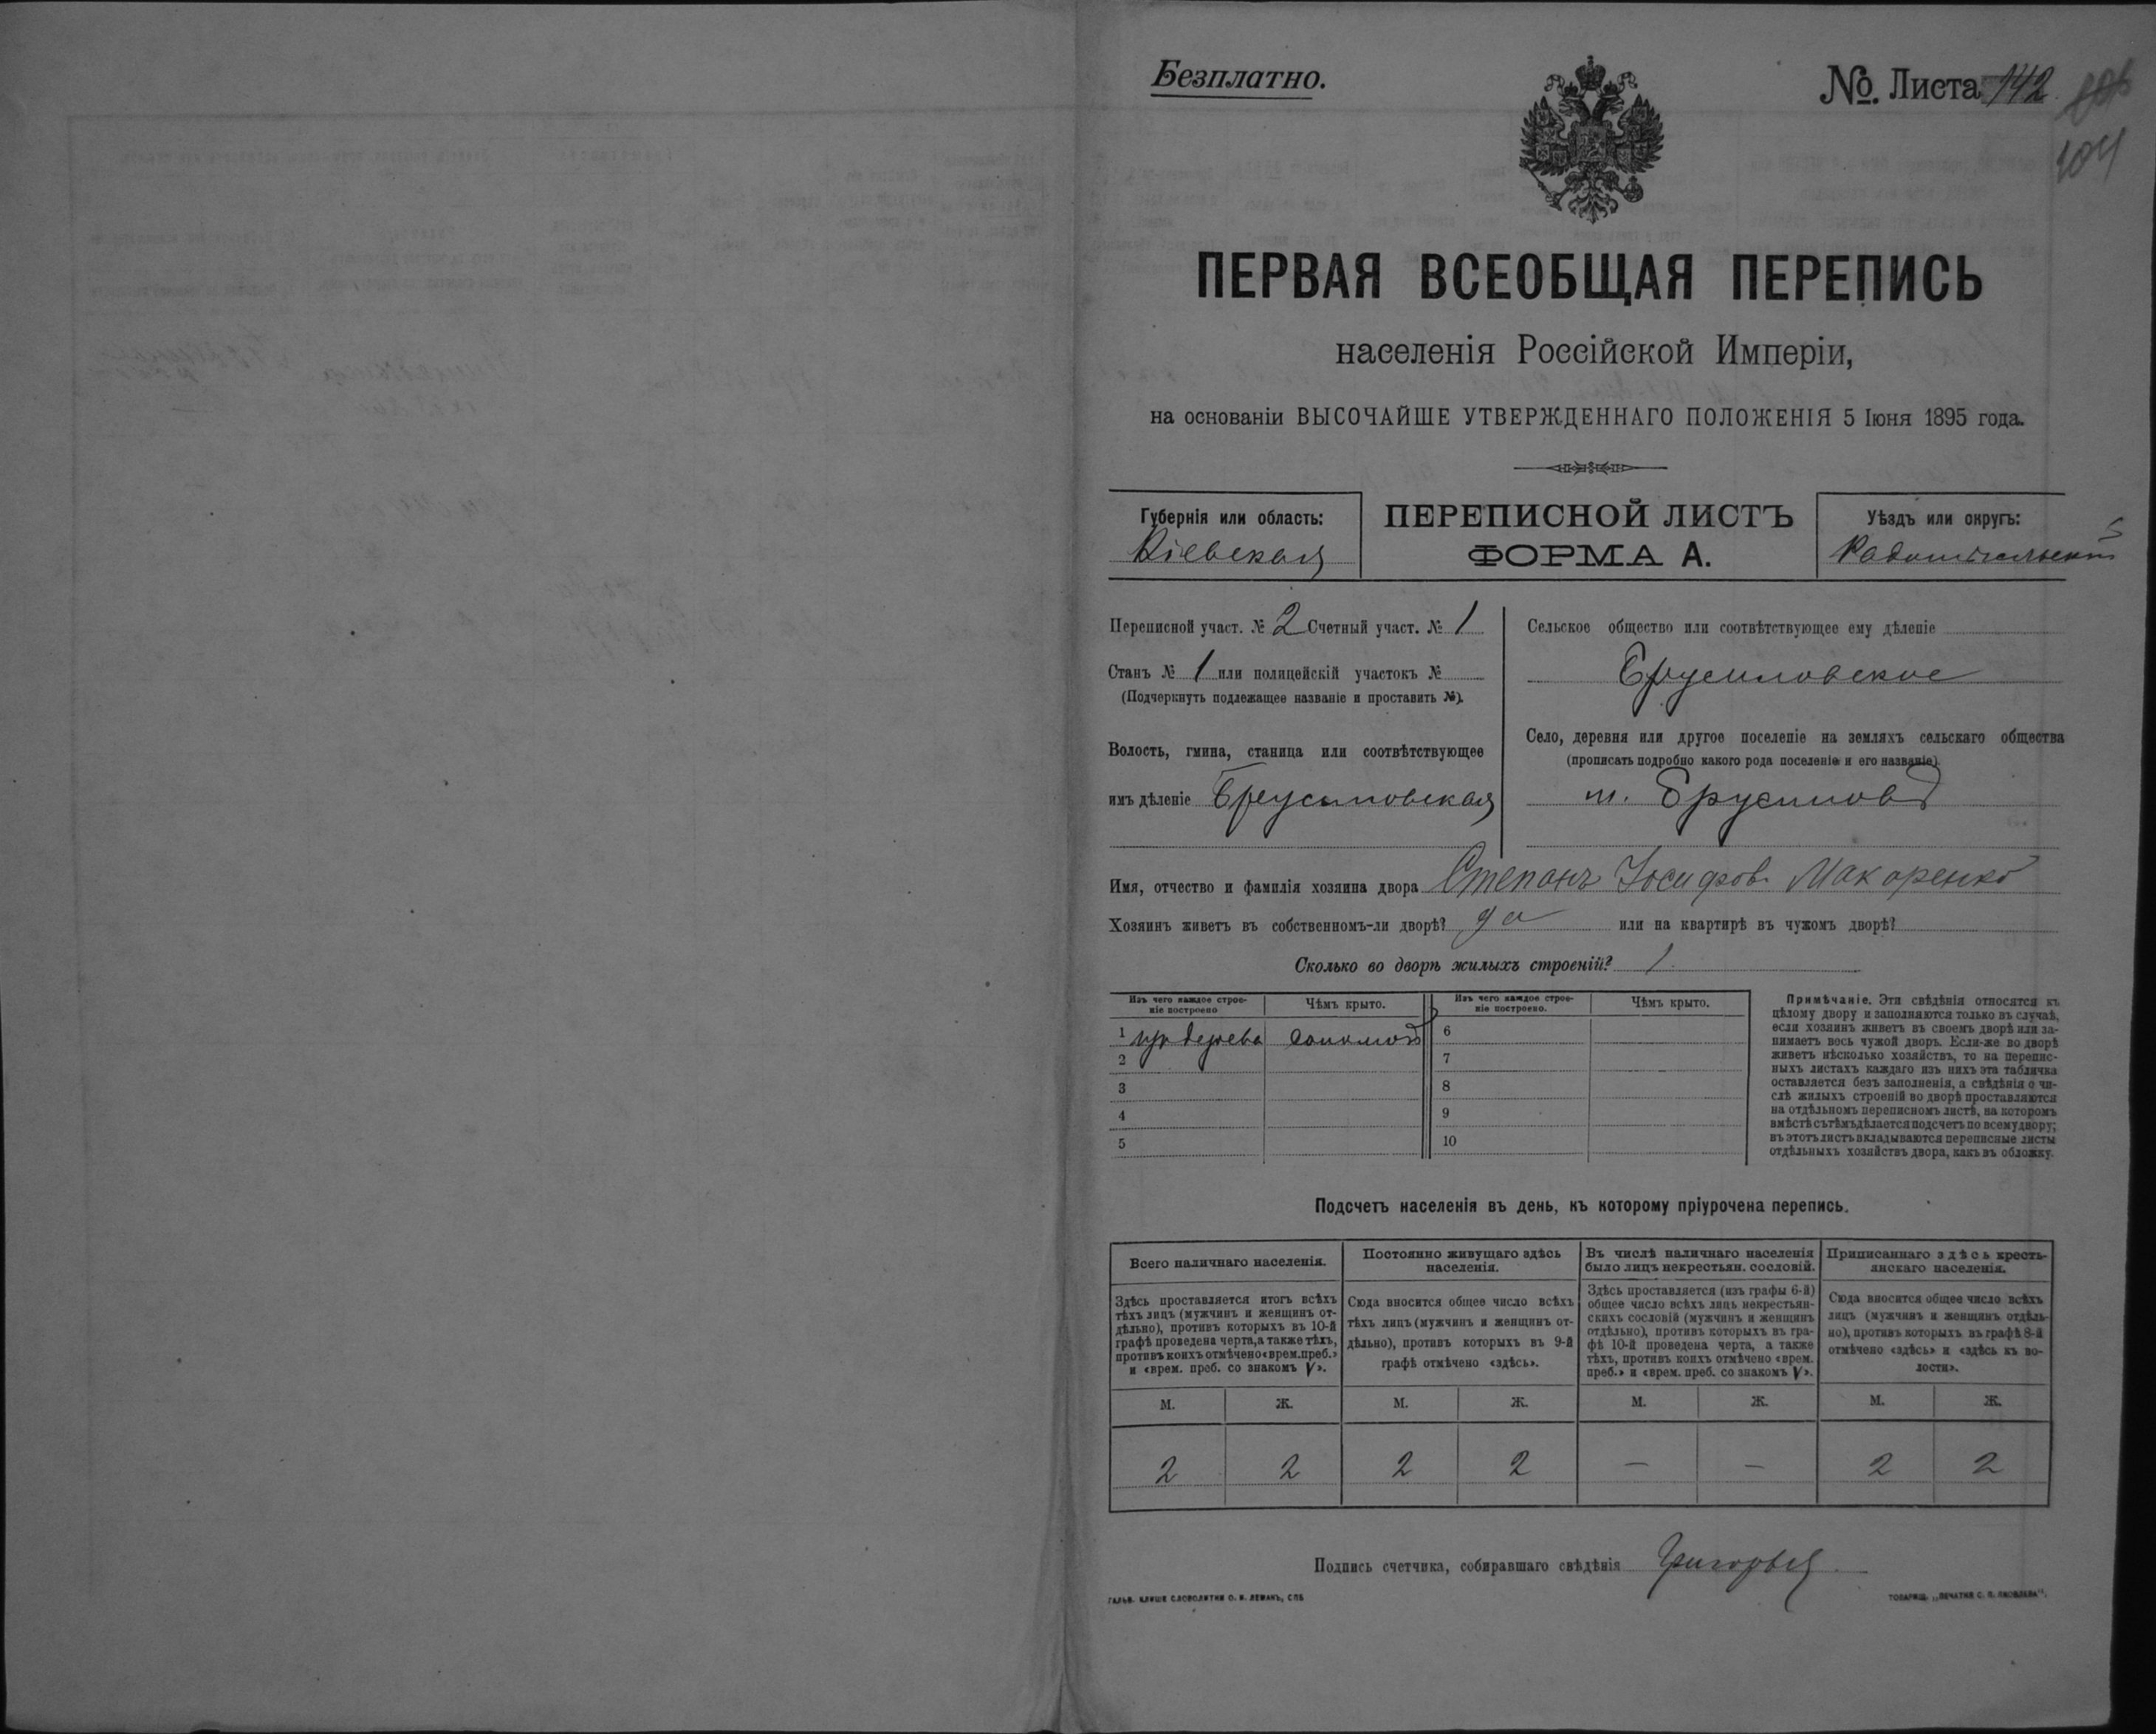 Безплатно.
№. Листа 142
104
ПЕРВАЯ ВСЕОБЩАЯ ПЕРЕПИСЬ
населенія Россійской Имперіи,
на основаніи ВЫСОЧАЙШЕ УТВЕРЖДЕННАГО ПОЛОЖЕНІЯ 5 Іюня 1895 года.
Губернія или область:
Кіевская
ПЕРЕПИСНОЙ ЛИСТЪ
ФОРМА А.
Уѣздъ или округъ:
Радомысльскій
Переписной участ. № 2 Счетный участ. № 1
Станъ № 1 или полицейскій участокъ №
(Подчеркнуть подлежащее названіе и проставить №).
Волость, гмина, станица или соотвѣтствующее
имъ дѣленіе Брусиловская
Сельское общество или соотвѣтствующее ему дѣленіе
Брусиловское
Село, деревня или другое поселеніе на земляхъ сельскаго общества
(прописать подробно какого рода поселеніе и его названіе)
м. Брусиловъ
Имя, отчество и фамилія хозяина двора Степанъ Іосифов. Макаренко
Хозяинъ живетъ въ собственномъ-ли дворѣ? да или на квартирѣ въ чужомъ дворѣ?
Сколько во дворѣ жилыхъ строеній? 1.
Изъ чего каждое строе-
ніе построено
Чѣмъ крыто.
Изъ чего каждое строе-
ніе построено.
Чѣмъ крыто.
1 изъ дерева соломой 6
2 7
3 8
4 9
5 10
Примѣчаніе. Эти свѣдѣнія относятся къ
цѣлому двору и заполняются только въ случаѣ,
если хозяинъ живетъ въ своемъ дворѣ или за-
нимаетъ весь чужой дворъ. Если-же во дворѣ
живетъ нѣсколько хозяйствъ, то на перепис-
ныхъ листахъ каждаго изъ нихъ эта табличка
оставляется безъ заполненія, а свѣдѣнія о чи-
слѣ жилыхъ строеній во дворѣ проставляются
на отдѣльномъ переписномъ листѣ, на которомъ
вмѣстѣ съ тѣмъ дѣлается подсчетъ по всему двору;
въ этотъ листъ вкладываются переписные листы
отдѣльныхъ хозяйствъ двора, какъ въ обложку.
Подсчетъ населенія въ день, къ которому пріурочена перепись.
Всего наличнаго населенія.
Здѣсь проставляется итогъ всѣхъ
тѣхъ лицъ (мужчинъ и женщинъ от-
дѣльно), противъ которыхъ въ 10-й
графѣ проведена черта, а также тѣхъ,
противъ коихъ отмѣчено «врем. преб.»
и «врем. преб. со знакомъ V».
Постоянно живущаго здѣсь
населенія.
Сюда вносится общее число всѣхъ
тѣхъ лицъ (мужчинъ и женщинъ от-
дѣльно), противъ которыхъ въ 9-й
графѣ отмѣчено «здѣсь».
Въ числѣ наличнаго населенія
было лицъ некрестьян. сословій.
Здѣсь проставляется (изъ графы 6-й)
общее число всѣхъ лицъ некрестьян-
скихъ сословій (мужчинъ и женщинъ
отдѣльно), противъ которыхъ въ гра-
фѣ 10-й проведена черта, а также
тѣхъ, противъ коихъ отмѣчено «врем.
преб.» и «врем. преб. со знакомъ V».
Приписаннаго здѣсь кресть-
янскаго населенія.
Сюда вносится общее число всѣхъ
лицъ (мужчинъ и женщинъ отдѣль-
но), противъ которыхъ въ графѣ 8-й
отмѣчено «здѣсь» и «здѣсь къ во-
лости».
М. Ж. М. Ж. М. Ж. М. Ж.
2 2 2 2 — — 2 2
Подпись счетчика, собиравшаго свѣдѣнія
ГАЛЬВ. КЛИШЕ СЛОВОЛИТНИ О. И. ЛЕМАНЪ, СПБ
ТОВАРИЩ. „ПЕЧАТНЯ С. П. ЯКОВЛЕВА".